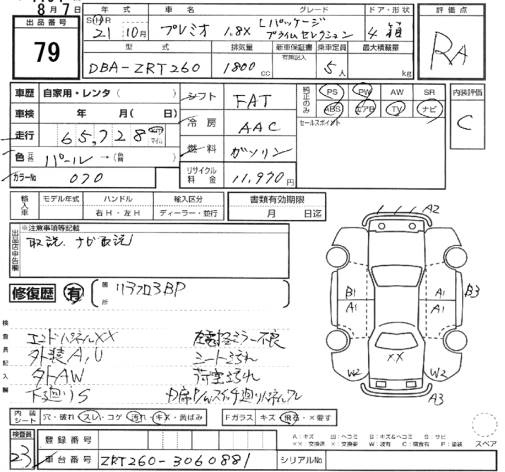 8月7
出品番号 年式 車名 グレード ドア・形状 評価点
79
21年10月 プレミオ 1.8X Lパッケージ プライムセレクション 4 箱
RA
型式 排気量 新車保証書 乗車定員 最大積載量
DBA-ZRT260 1800cc 有 5人 kg
車歴 自家用・レンタ( ) シフト FAT
純正のみ PS PW AW SR 内装評価
ABS エアB TV ナビ C
車検 年 月( 日) 冷房 AAC
セールスポイント
走行 65,728 マイル 燃料 ガソリン
色 パール →(
カラーNo 070 リサイクル料金 11,970円
輸入車 モデル年式 ハンドル 輸入区分 書類有効期限
右H・左H ディーラー・並行 月 日迄
出品店申告欄 ※注意事項等記載
取説、ナビ取説
修復歴 有 箇所
A2
B1 A1 A1 B3
XX
W2 W2
A3
検査員記入欄
エンドパネルXX 左電格ミラー不良
外装A,U シートよごれ
外AW 荷室よごれ
下廻りS
内装シート 穴・破れ スレ・コゲ 汚れ・キズ・黄ばみ Fガラス キズ・飛石・×要す
スペア
検査員 登録番号
23 車台番号 ZRT260-3060881 シリアルNo